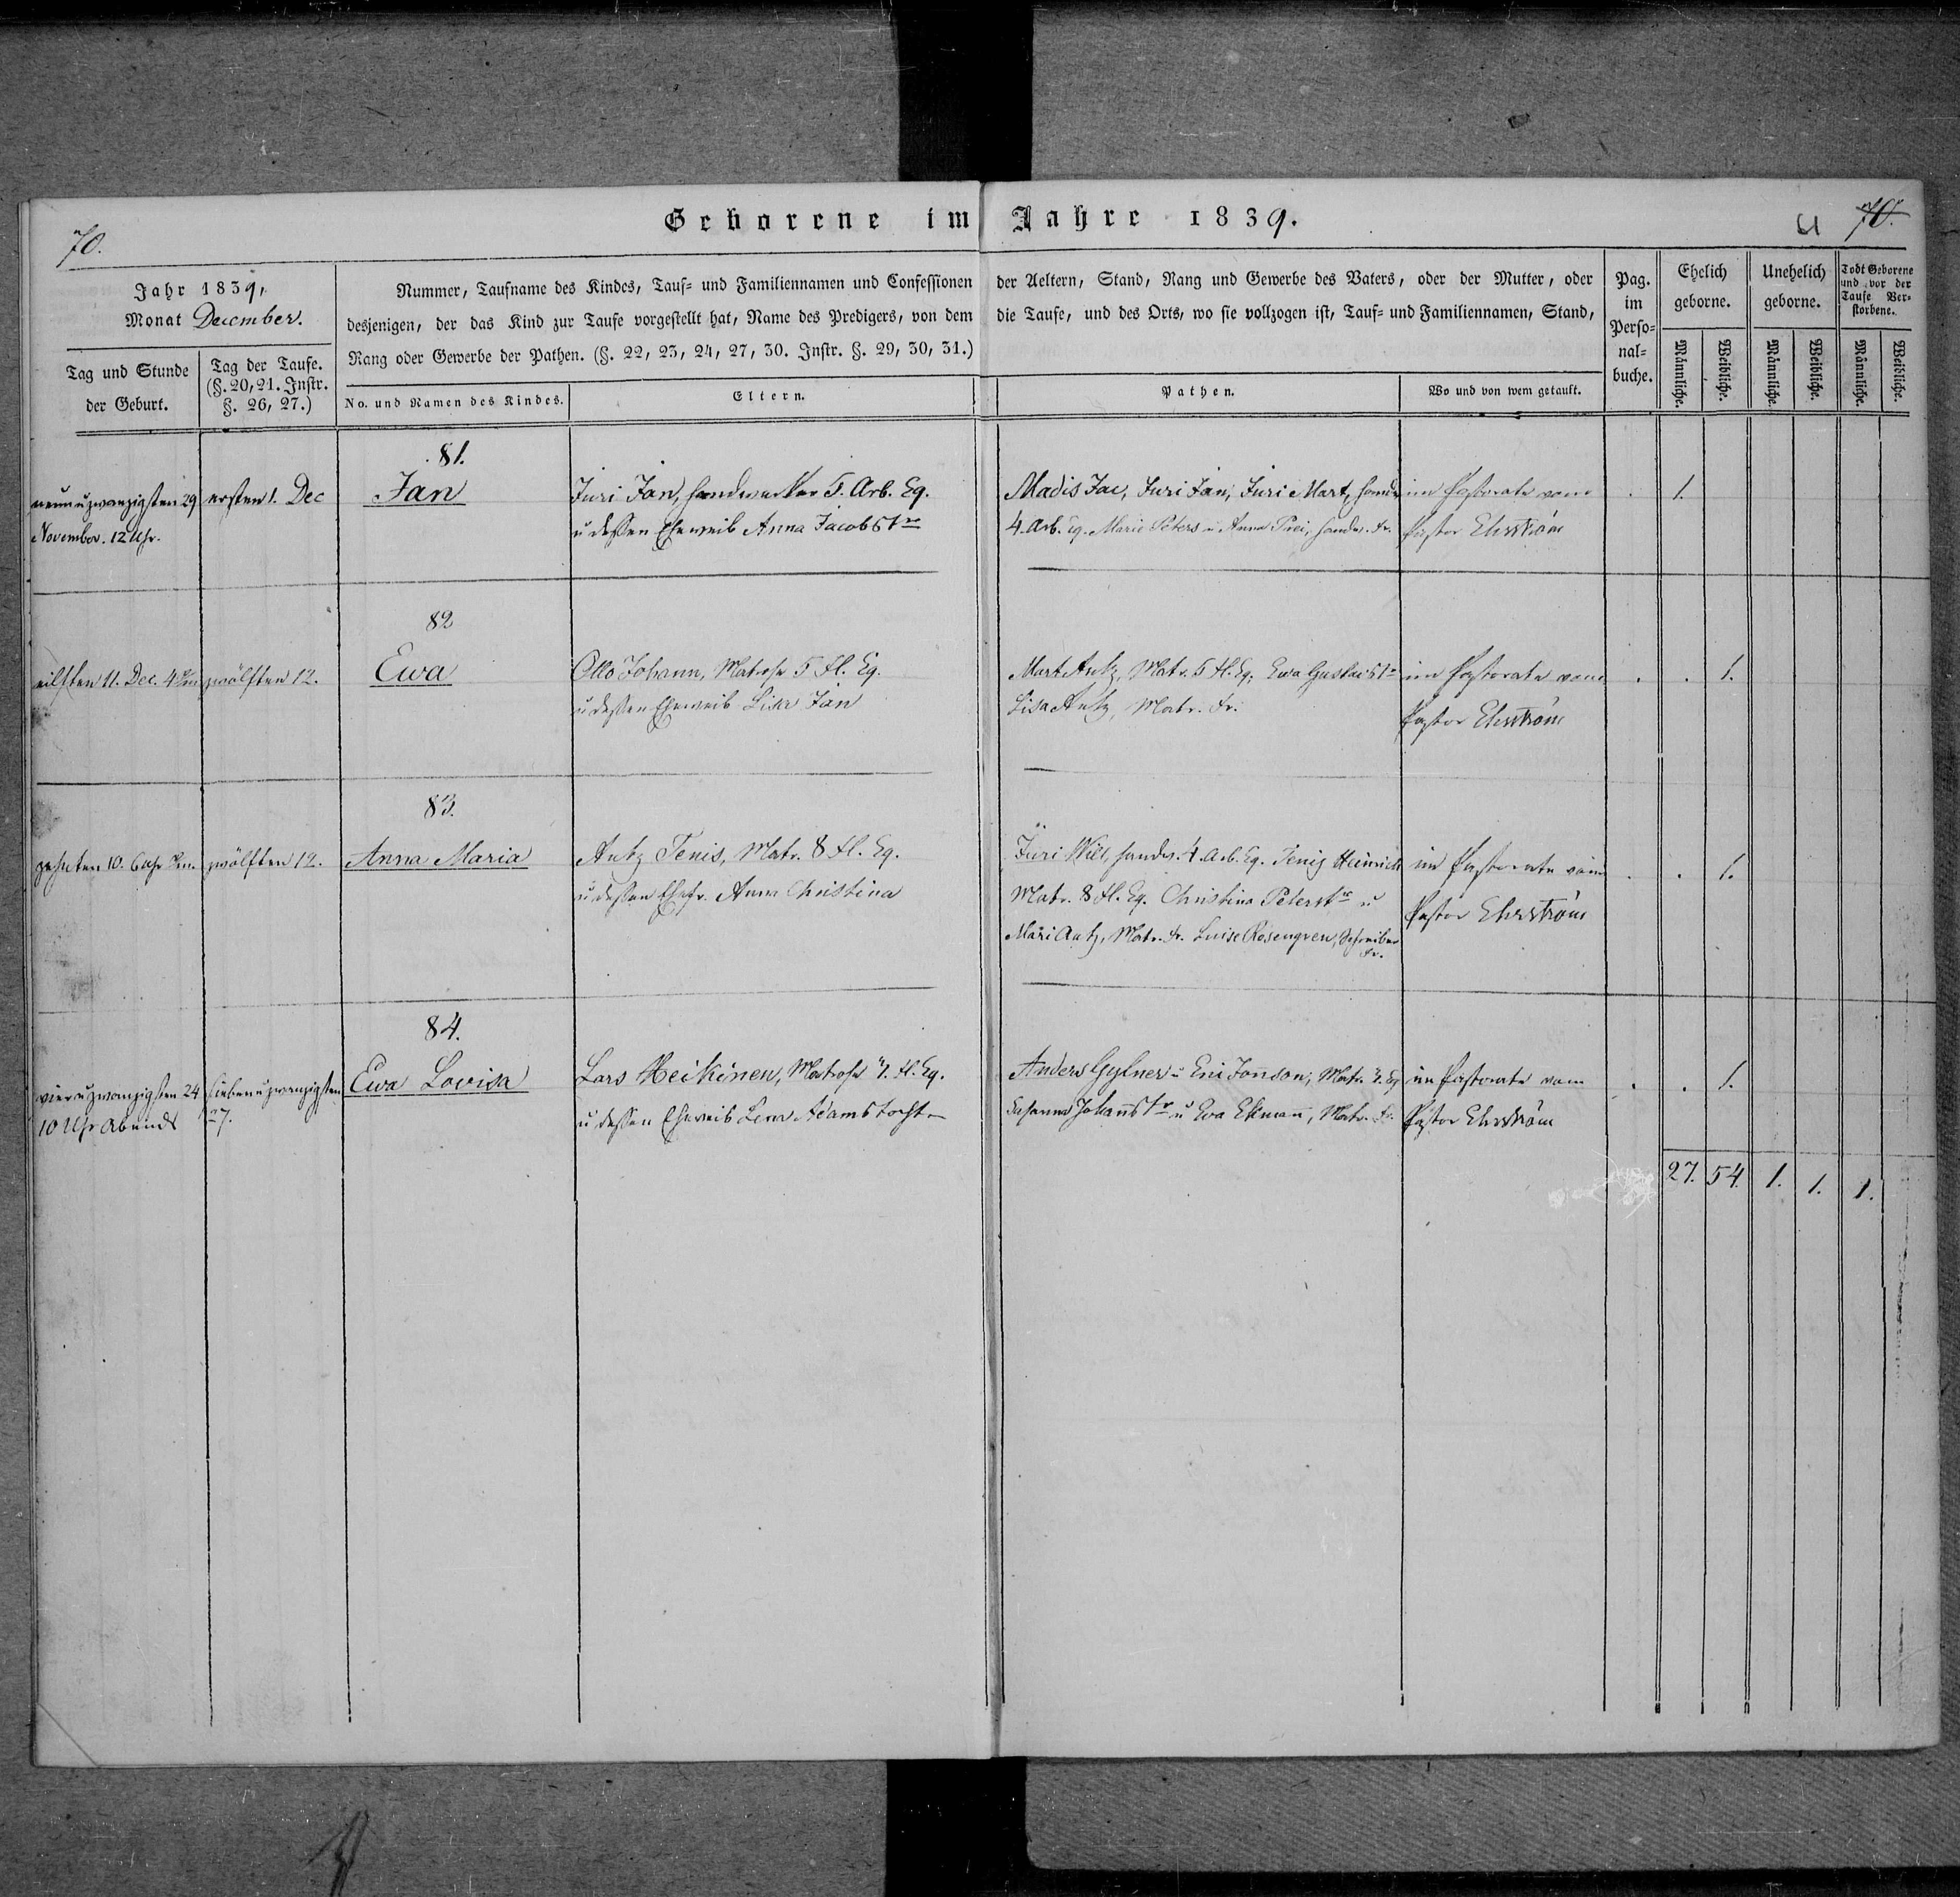 70.
Geborene im Jahre 1839.
70.
Jahr 1839,
Monat December.
Tag und Stunde
der Geburt.
Tag der Taufe.
(§. 20, 21. Instr.
§. 26, 27.)
Nummer, Taufname des Kindes, Tauf- und Familiennamen und Confessionen der Aeltern, Stand, Rang und Gewerbe des Vaters, oder der Mutter, oder
desjenigen, der das Kind zur Taufe vorgestellt hat, Name des Predigers, von dem die Taufe, und des Orts, wo sie vollzogen ist, Tauf- und Familiennamen, Stand,
Rang oder Gewerbe der Pathen. (§. 22, 23, 24, 27, 30. Instr. §. 29, 30, 31.)
No. und Namen des Kindes.
Eltern.
Pathen.
Wo und von wem getauft.
Pag.
im
Perso-
nal-
buche.
Ehelich
geborne.
Unehelich
geborne.
Todt Geborene
und vor der
Taufe Ver-
storbene.
Männliche.
Weibliche.
Männliche.
Weibliche.
Männliche.
Weibliche.
neun u zwanzigsten 29
November. 12 Uhr.
ersten 1. Dec
81.
Jan
Juri Jan, Handwerker 5. Arb. Eq.
u dessen Eheweib Anna Jacobstr
Madis Jac, Juri Jan, Juri Mart, Handw
4. Arb. Eq. Marie Peters u Anna Prei, Handw. Fr.
im Pastorate vom
Pastor Ehrström
1.
eilften 11. Dec. 4
zwölften 12.
82
Ewa
Otto Johann, Matrose 5 Fl. Eq.
u dessen Eheweib Lisa Jan
Mart Antz, Matr. 5 Fl. Eq. Ewa Gustavstr
Lisa Antz, Matr. Fr.
im Pastorate vom
Pastor Ehrström
1.
zehnten 10. 6 Uhr
zwölften 12.
83.
Anna Maria
Antz Tenis, Matr. 8 Fl. Eq.
u dessen Ehefr. Anna Christina
Jüri Will, Handw. 4. Arb. Eq. Tenis Heinrich
Matr. 8 Fl. Eq. Christina Peterstr u
Mari Antz, Matr. Fr. Luise Rosengren, Schreiber
Fr.
im Pastorate vom
Pastor Ehrström
1.
vier u zwanzigsten 24
10 Uhr Abends
sieben u zwanzigsten
27.
84.
Ewa Lovisa
Lars Heikinen, Matrose 7. Fl. Eq.
u dessen Eheweib Lena Adamstocht
Anders Gylner u Eni Jonson, Matr. 7. Eq
Susanna Johannstr u Eva Ekman, Matr. Fr.
im Pastorate vom
Pastor Ehrström
1.
27. 54. 1. 1. 1.